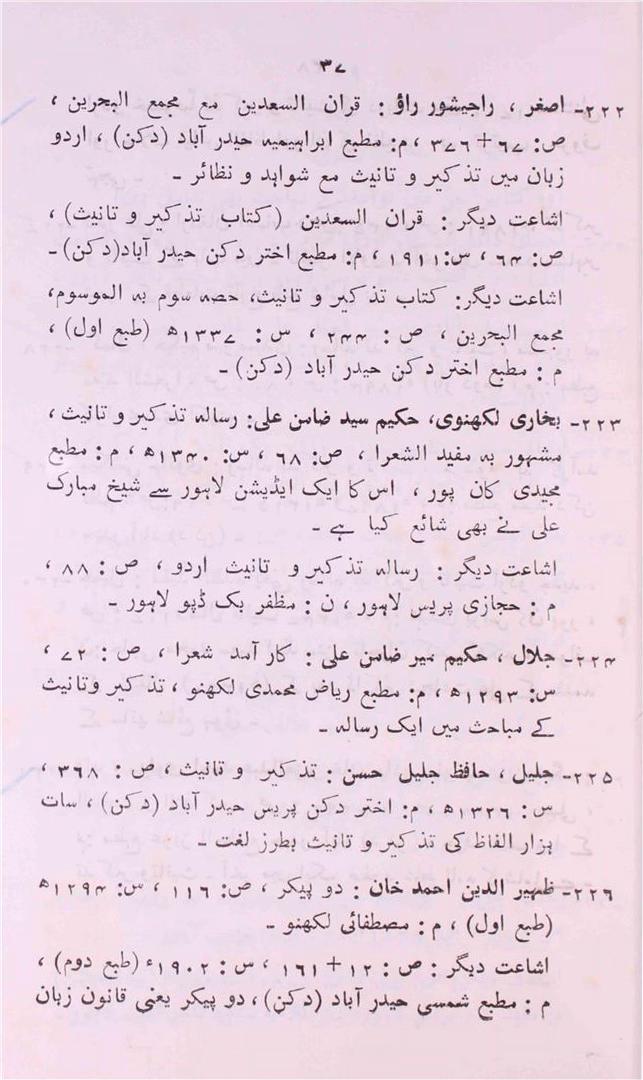 ۳۷
۲۲۲- اصغر ، راجیشور راؤ : قران السعدین مع مجمع البحرین ،
ص: ۶۷ + ۳۷۶ ، م: مطبع ابراهیمیہ حیدر آباد (دکن) ، اردو
زبان میں تذکیر و تانیث مع شواہد و نظائر ۔
اشاعت دیگر : قران السعدین (کتاب تذکیر و تانیث) ،
ص: ۶۴ ، س: ۱۹۱۱ ، م: مطبع اختر دکن حیدر آباد(دکن)۔
اشاعت دیگر: کتاب تذکیر و تانیث، حصہ سوم بہ الموسوم،
مجمع البحرین ، ص : ۲۴۴ ، س : ۱۳۳۷ھ (طبع اول) ،
م : مطبع اختر دکن حیدر آباد (دکن) ۔
۲۲۳- بخاری لکھنوی، حکیم سید ضامن علی: رسالہ تذکیر و تانیث ،
مشہور بہ مفید الشعرا ، ص: ۶۸ ، س: ۱۳۴۰ھ ، م: مطبع
مجیدی کان پور ، اس کا ایک ایڈیشن لاہور سے شیخ مبارک
علی نے بھی شائع کیا ہے ۔
اشاعت دیگر : رسالہ تذکیر و تانیث اردو ، ص : ۸۸ ،
م : حجازی پریس لاہور ، ن : مظفر بک ڈپو لاہور ۔
۲۲۴- جلال ، حکیم میر ضامن علی : کار آمد شعرا ، ص : ۷۲ ،
س: ۱۲۹۳ھ ، م: مطبع ریاض محمدی لکھنو ، تذکیر وتانیث
کے مباحث میں ایک رسالہ ۔
۲۲۵- جلیل ، حافظ جلیل حسن : تذکیر و تانیث ، ص : ۳۶۸ ،
س : ۱۳۲۶ھ ، م: اختر دکن پریس حیدر آباد (دکن) ، سات
ہزار الفاظ کی تذکیر و تانیث بطرز لغت ۔
۲۲۶- ظہیر الدین احمد خان : دو پیکر ، ص: ۱۱۶ ، س: ۱۲۹۴ھ
(طبع اول) ، م : مصطفائی لکھنو ۔
اشاعت دیگر : ص : ۱۲ + ۱۶۱ ، س : ۱۹۰۲ء (طبع دوم) ،
م : مطبع شمسی حیدر آباد (دکن) ، دو پیکر یعنی قانون زبان